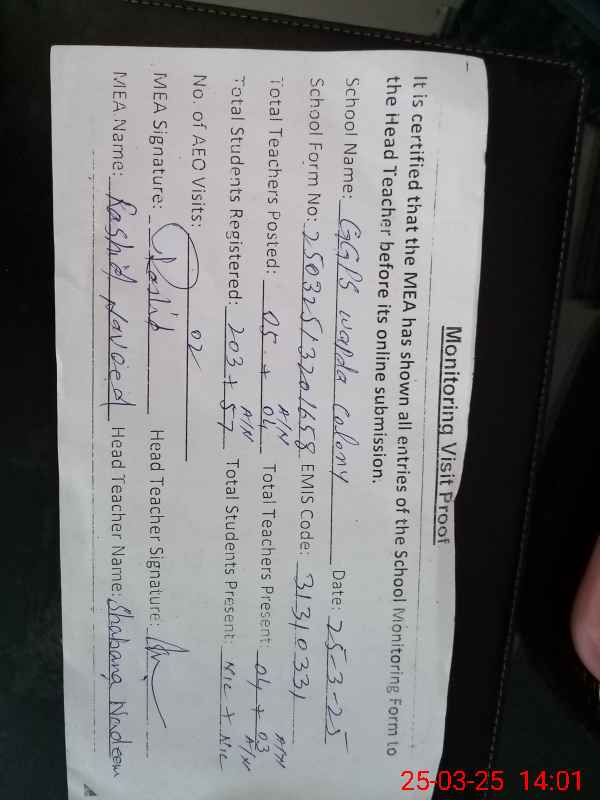 Monitoring Visit Proof
It is certified that the MEA has shown all entries of the School Monitoring Form to
the Head Teacher before its online submission.
School Name: GGPS wapda colony Date: 25-3-25
School Form No: 25032513201658 EMIS Code: 31310331
A/N A/N
Total Teachers Posted: 05 + 04 Total Teachers Present: 04 + 03
A/N A/N
Total Students Registered: 203 + 57 Total Students Present: NIL + NIL
No. of AEO Visits: 02
MEA Signature: Rashid Head Teacher Signature:
MEA Name: Rashid Naveed Head Teacher Name: Shabana Nadeem
25-03-25 14:01